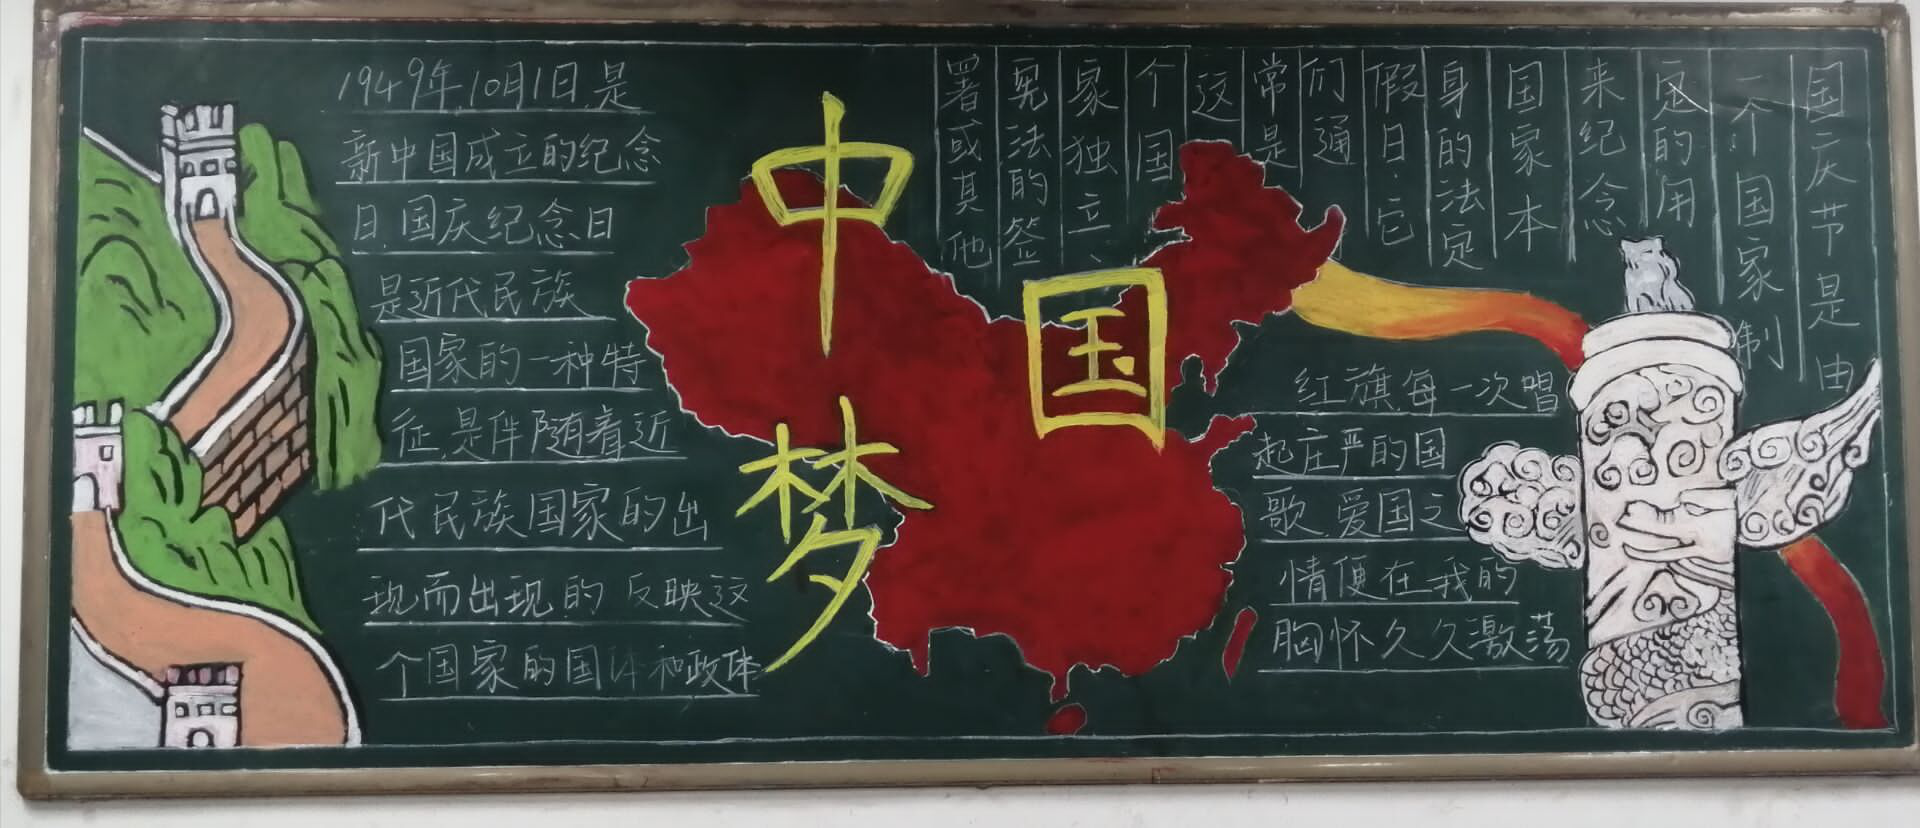 1949年,10月1日,是
新中国成立的纪念
日,国庆纪念日
是近代民族
国家的一种特
征,是伴随着近
代民族国家的出
现而出现的 反映这
个国家的国体和政体
中国梦
国庆节是由
一个国家制
定的用
来纪念
国家本
身的法定
假日.它
们通
常是
这
个国
家独立、
宪法的签
署或其他
红旗每一次唱
起庄严的国
歌,爱国之
情便在我的
胸怀久久激荡